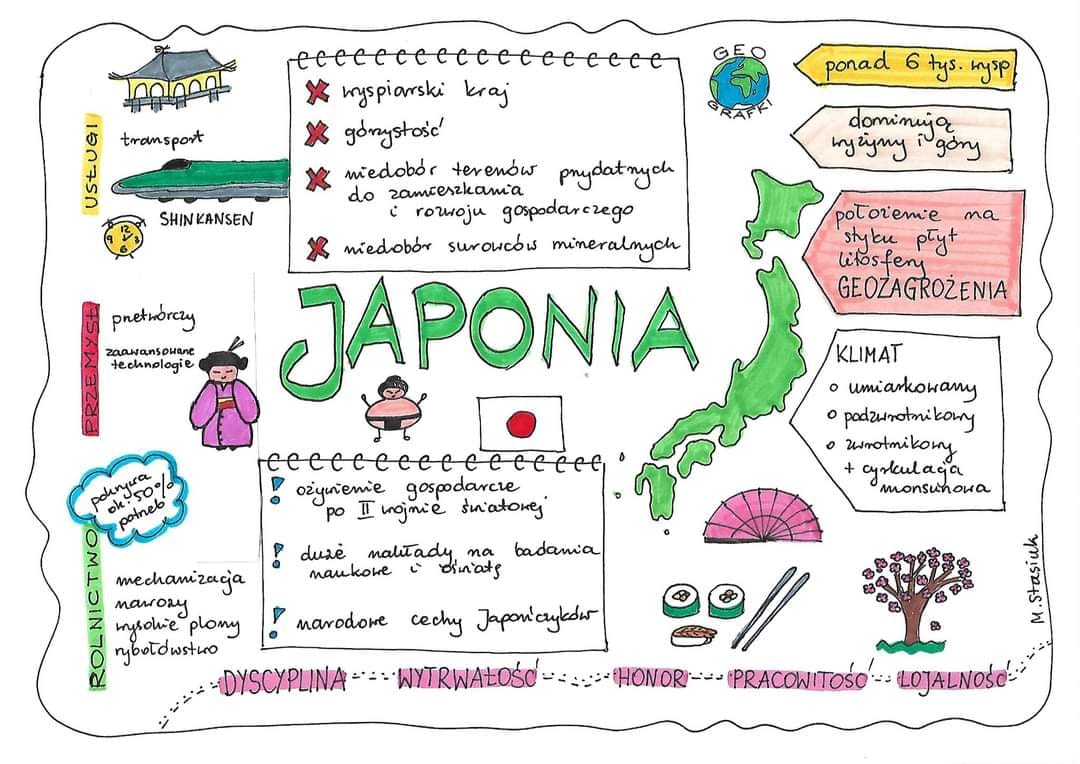 USŁUGI
transport
SHINKANSEN
12
9 3
6
wyspiarski kraj
górzystość
niedobór terenów przydatnych
do zamieszkania
i rozwoju gospodarczego
niedobór surowców mineralnych
GEO
GRAFKI
ponad 6 tys. wysp
dominują
wyżyny i góry
położenie na
styku płyt
litosfery
GEOZAGROŻENIA
PRZEMYSŁ
przetwórczy
zaawansowane
technologie
JAPONIA
KLIMAT
umiarkowany
podzwrotnikowy
zwrotnikowy
+ cyrkulacja
monsunowa
pokrywa
ok. 50%
potrzeb
ROLNICTWO
mechanizacja
nawozy
wysokie plony
rybołówstwo
ożywienie gospodarcze
po II wojnie światowej
duże nakłady na badania
naukowe i oświatę
narodowe cechy Japończyków
DYSCYPLINA WYTRWAŁOŚĆ HONOR PRACOWITOŚĆ LOJALNOŚĆ
M. Stasiuk